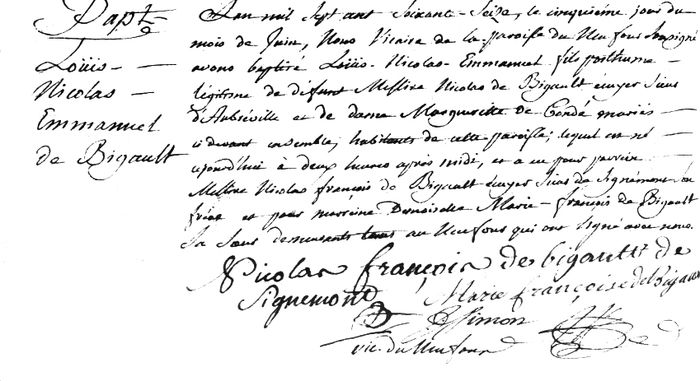 Bapt.
Loüis
Nicolas
Emmanuel
de Bigault
L'an mil Sept cent Soixante-Seize, le cinquième jour du
mois de Juin, Nous Vicaire de la paroisse du Neufour Soussigné
avons baptisé Loüis-Nicolas-Emmanuel fils posthume
légitime de défunt Messire Nicolas de Bigault écuyer Sieur
d'Aubréville et de dame Marguerite de Condé mariés
ci devant ensemble, habitants de cette paroisse, lequel est né
aujourd'hui à deux heures après midi, et a eu pour parrein
Messire Nicolas françois de Bigault écuyer Sieur de Signémont son
frère et pour marreine Demoiselle Marie-françoise de Bigault
Sa Sœur demeurants tous au Neufour qui ont Signé avec nous.
Nicolas françois de bigault de
Signemont
Marie françoise de Bigault
Simon
vic. du Neufour